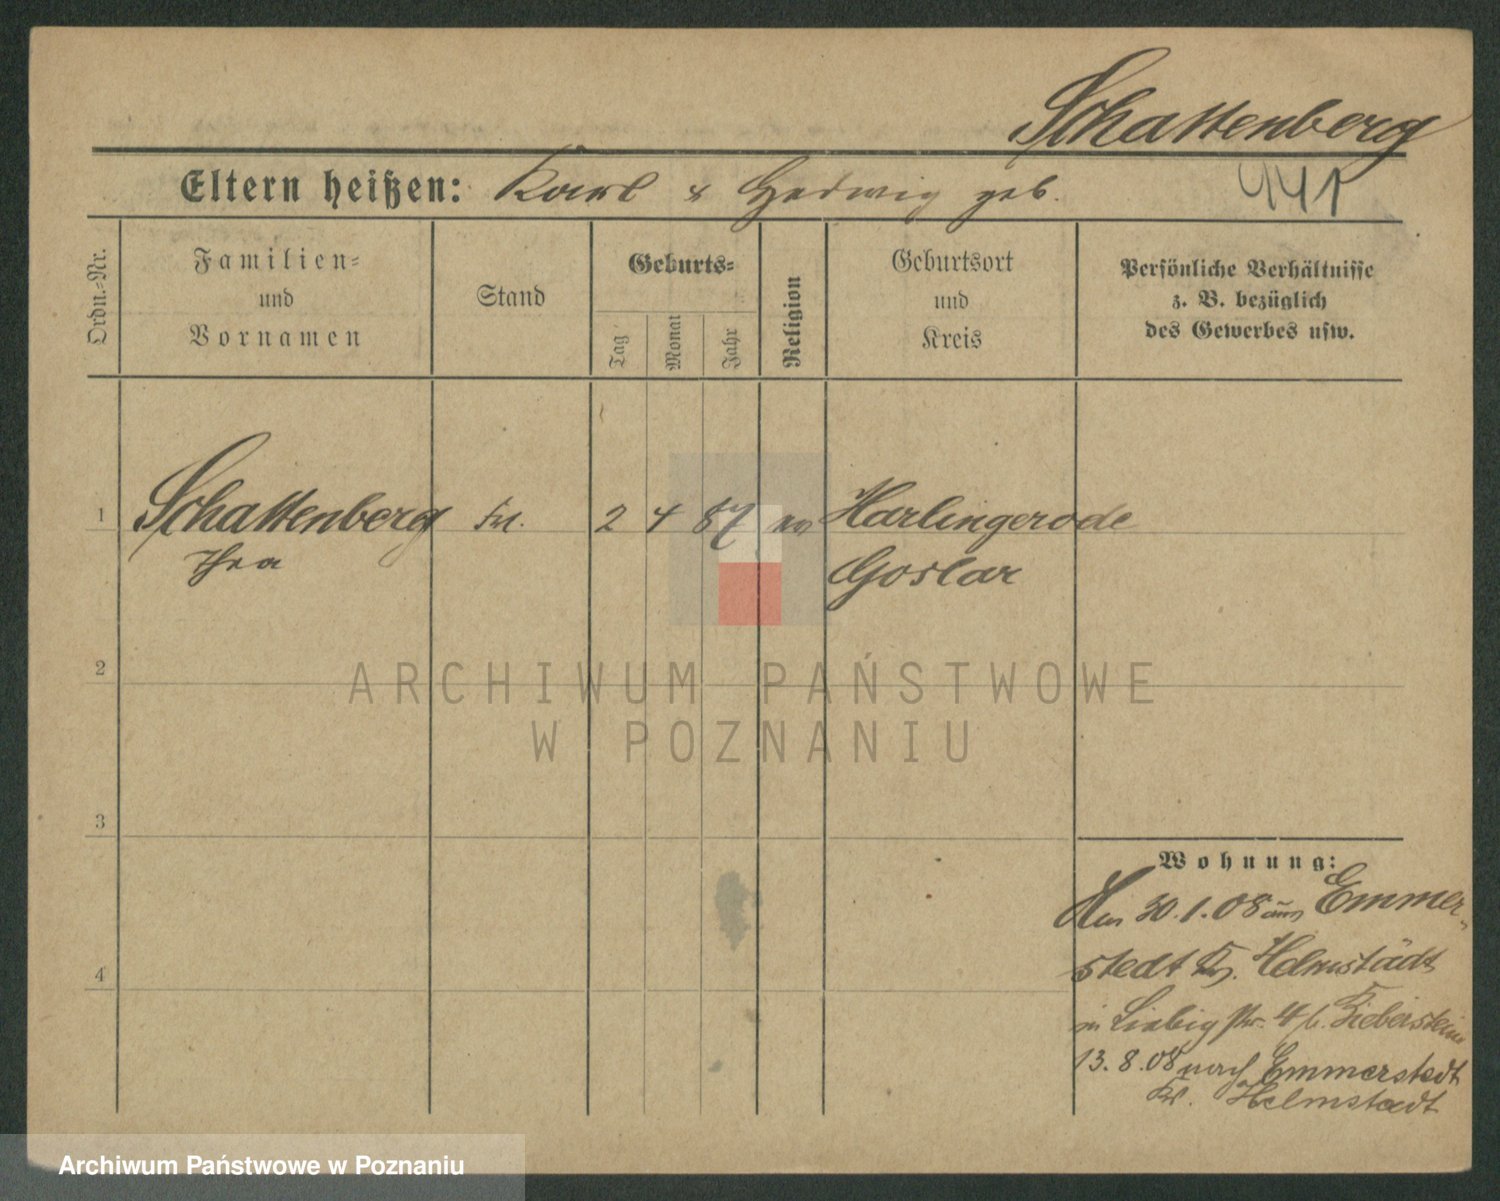 Schattenberg
Eltern heißen: Karl & Hedwig geb.
Ordn.-Nr.
Familien-
und
Vornamen
Stand
Geburts-
Tag
Monat
Jahr
Religion
Geburtsort
und
Kreis
Persönliche Verhältnisse
z. B. bezüglich
des Gewerbes usw.
1 Schattenberg Frl. 2 4 87 ev Harlingerode
Thea Goslar
2
3
4
ARCHIWUM PAŃSTWOWE
W POZNANIU
Wohnung:
30.1.08 aus Emmer-
stedt Kr. Helmstädt
in Liebigstr. 4 b. Bieberstein
13.8.08 nach Emmerstedt
Kr. Helmstedt
Archiwum Państwowe w Poznaniu